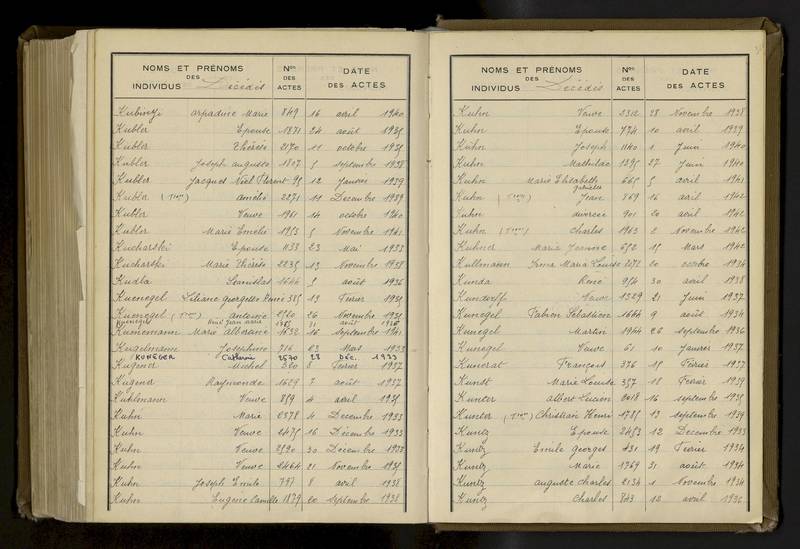 NOMS ET PRÉNOMS DES INDIVIDUS Décédés Nos DES ACTES DATE DES ACTES
Kubinyi arpadine Marie 849 16 avril 1940
Kubler Epouse 1871 24 août 1935
Kubler Thérèse 2170 11 octobre 1935
Kubler Joseph auguste 1807 5 septembre 1938
Kubler Jacques Noël Florent 95 12 Janvier 1939
Kubler amélie 2271 11 Decembre 1939
Kubler Veuve 1961 14 octobre 1940
Kubler Marie Emelie 1953 5 Novembre 1941
Kucharski Epouse 1133 23 Mai 1933
Kucharski Marie Thérèse 2235 13 Novembre 1938
Kudla Stanislas 1644 5 août 1936
Kuenegel Liliane georgette Renée 385 13 Fevrier 1935
Kuenegel antoine 2520 26 Novembre 1935
Kuenegel 31 août
Kunnemann Marie Albérance 1632 16 septembre 1941
Kugelmann Josephine 716 23 Mars 1933
KUNEGER Catherine 2570 28 DÉC. 1933
Kugener Michel 320 8 Fevrier 1937
Kugener Raymonde 1629 7 août 1937
Kuhlmann Veuve 859 4 avril 1935
Kuhn Marie 2378 4 Decembre 1933
Kuhn Veuve 2475 16 Décembre 1933
Kuhn Veuve 2590 30 Decembre 1933
Kuhn Veuve 2464 21 Novembre 1935
Kuhn Joseph Emile 757 8 avril 1938
Kuhn Eugène Camille 1879 20 septembre 1938
NOMS ET PRÉNOMS DES INDIVIDUS Décédés Nos DES ACTES DATE DES ACTES
Kuhn Veuve 2312 28 Novembre 1938
Kuhn Epouse 774 10 avril 1939
Kuhn Joseph 1140 1 Juin 1940
Kuhn Mathilde 1395 27 Juin 1940
Kuhn Marie Elisabeth 665 5 avril 1941
Kuhn Jean 869 16 avril 1942
Kuhn divorcée 901 20 avril 1942
Kuhn Charles 1963 2 Novembre 1942
Kuhner Marie Jeanne 652 15 Mars 1942
Kullmann Irma Maria Louise 2072 20 octobre 1934
Kunda René 954 30 avril 1938
Kundorff Veuve 1329 21 Juin 1937
Kunegel Fabien Sébastien 1664 9 août 1934
Kunegel Martin 1944 26 septembre 1936
Kunegel Veuve 61 10 Janvier 1937
Kunerat François 376 15 Fevrier 1937
Kunst Marie Louise 357 18 Fevrier 1939
Kunter albert Lucien 2018 16 septembre 1935
Kunter Christian Henri 1785 13 septembre 1939
Kuntz Epouse 2453 12 Decembre 1933
Kuntz Emile georges 431 19 Fevrier 1934
Kuntz Marie 1769 31 août 1934
Kuntz auguste charles 2134 1 Novembre 1934
Kuntz Charles 843 10 avril 1936